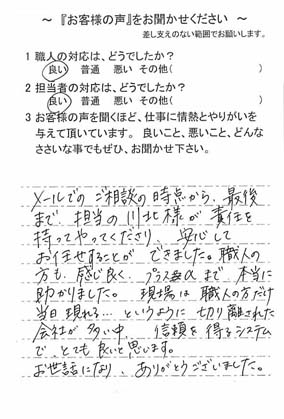 ～『お客様の声』をお聞かせください～
差し支えのない範囲でお願いします。
1 職人の対応は、どうでしたか?
良い 普通 悪い その他( )
2 担当者の対応は、どうでしたか?
良い 普通 悪い その他( )
3 お客様の声を聞くほど、仕事に情熱とやりがいを
与えて頂いています。 良いこと、悪いこと、どんな
ささいな事でもぜひ、お聞かせ下さい。
メールでのご相談の時点から、最後
まで、担当の川北様が責任を
持ってやってくださり、安心して
お任せすることができました。職人の
方も、感じ良く、プラスαまで、本当に
助かりました。 現場は職人の方だけ
当日現れる… というように切り離された
会社が多い中、信頼を得るシステム
で、とても良いと思います。
お世話になり、ありがとうございました。